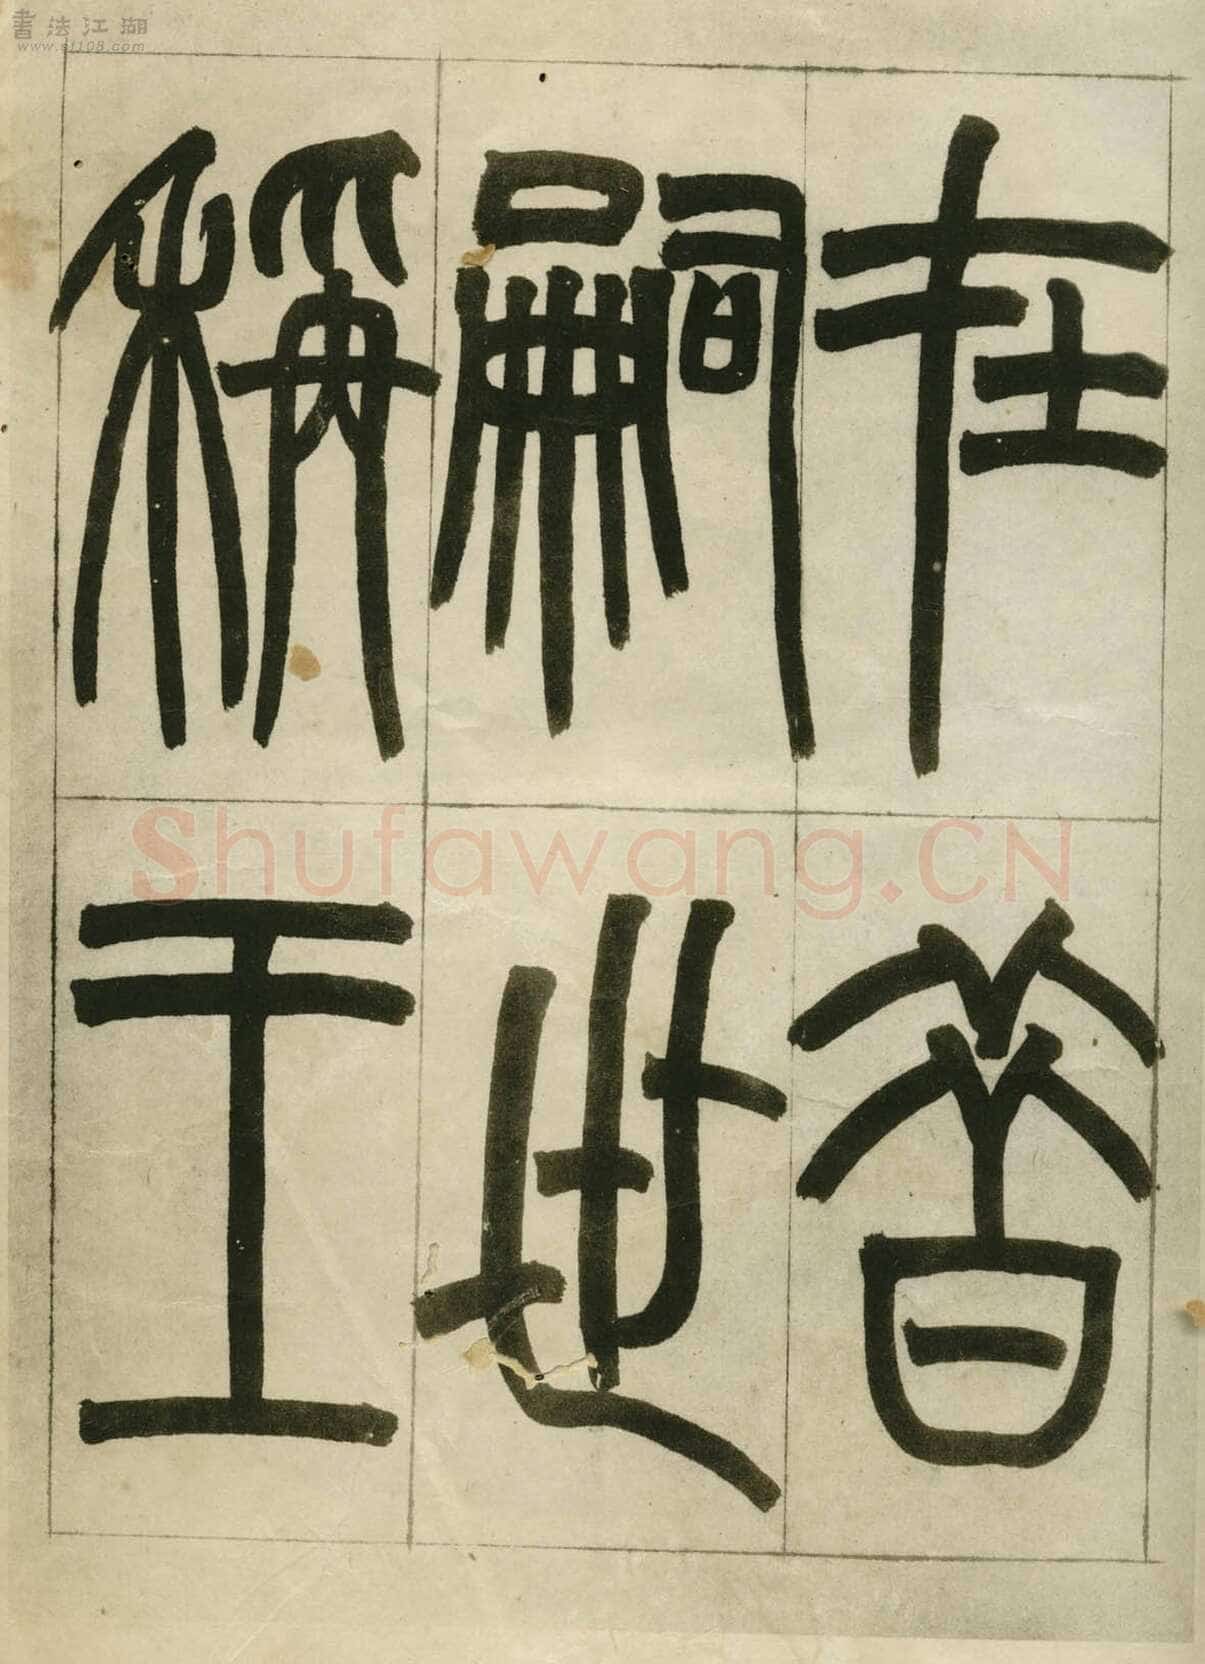 在昔
嗣世
稱王
書法江湖
www.sf108.com
Shufawang.CN